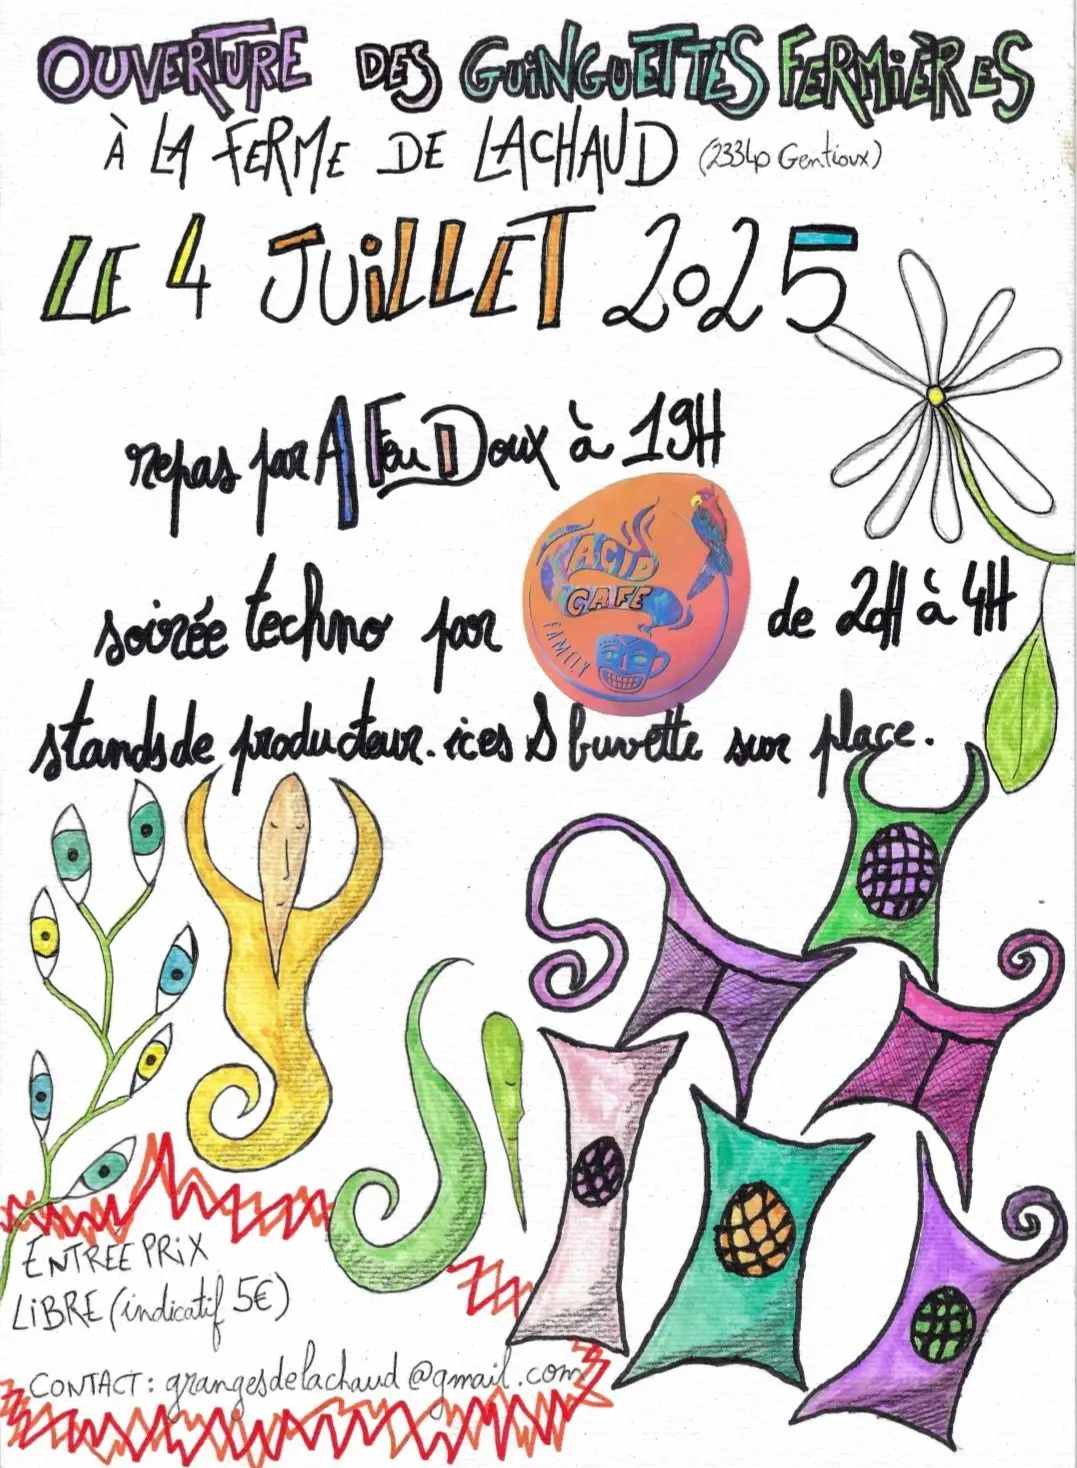 OUVERTURE DES GUiNGUETTES FERMiÈRES
À LA FERME DE LACHAUD (23340 Gentioux)
LE 4 JUiLLET 2025
repas par A Feu Doux à 19H
ACID
CAFE
FAMILY
soirée techno par de 20H à 4H
stands de producteur.ices & buvette sur place.
ENTREE PRiX
LiBRE (indicatif 5€)
CONTACT : grangesdelachaud@gmail.com